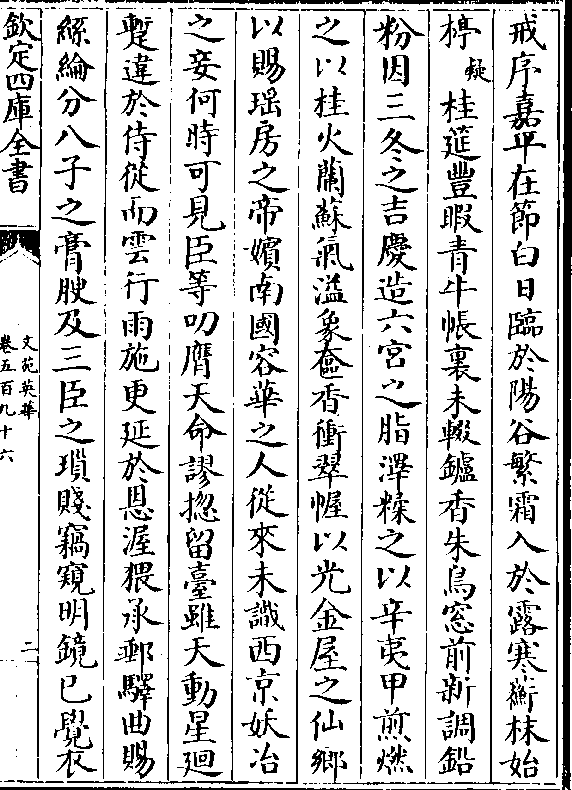 戒序嘉平在節白日臨於陽谷繁霜入於露寒蘅林始
椁疑桂莚豐暇青牛帳裏未輟鑪香朱鳥窓前新調鉛
粉因三冬之吉慶造六宮之脂澤糅之以辛夷甲煎燃
之以桂火蘭蘇氣溢象奩香衝翠幄以光金屋之仙鄉
以賜瑶房之帝嬪南國容華之人從來未識西京妖冶
之妾何時可見臣等叨膺天命謬揔留臺雖天動星廻
蹔違於侍從而雲行雨施更延於恩渥猥承郵驛曲賜
絲綸分八子之膏腴及三臣之瑣賤竊窺明鏡已覺衣
欽定四庫全書
文苑英華
卷五百九十六
二